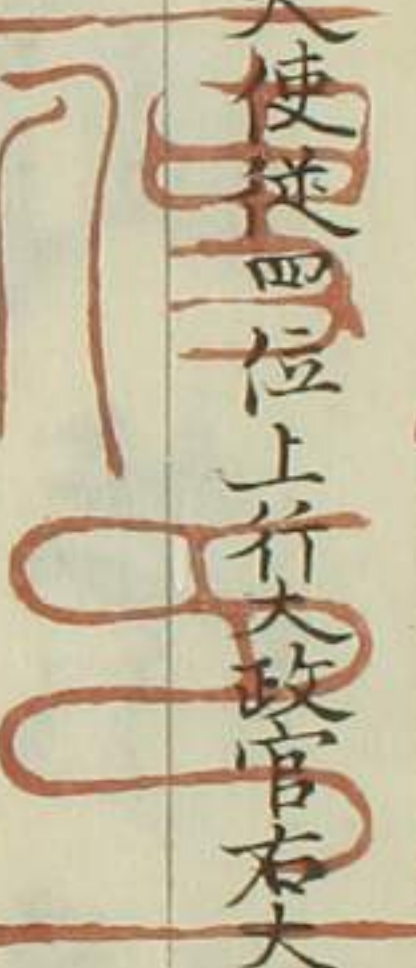 大使従四位上行大政官右大